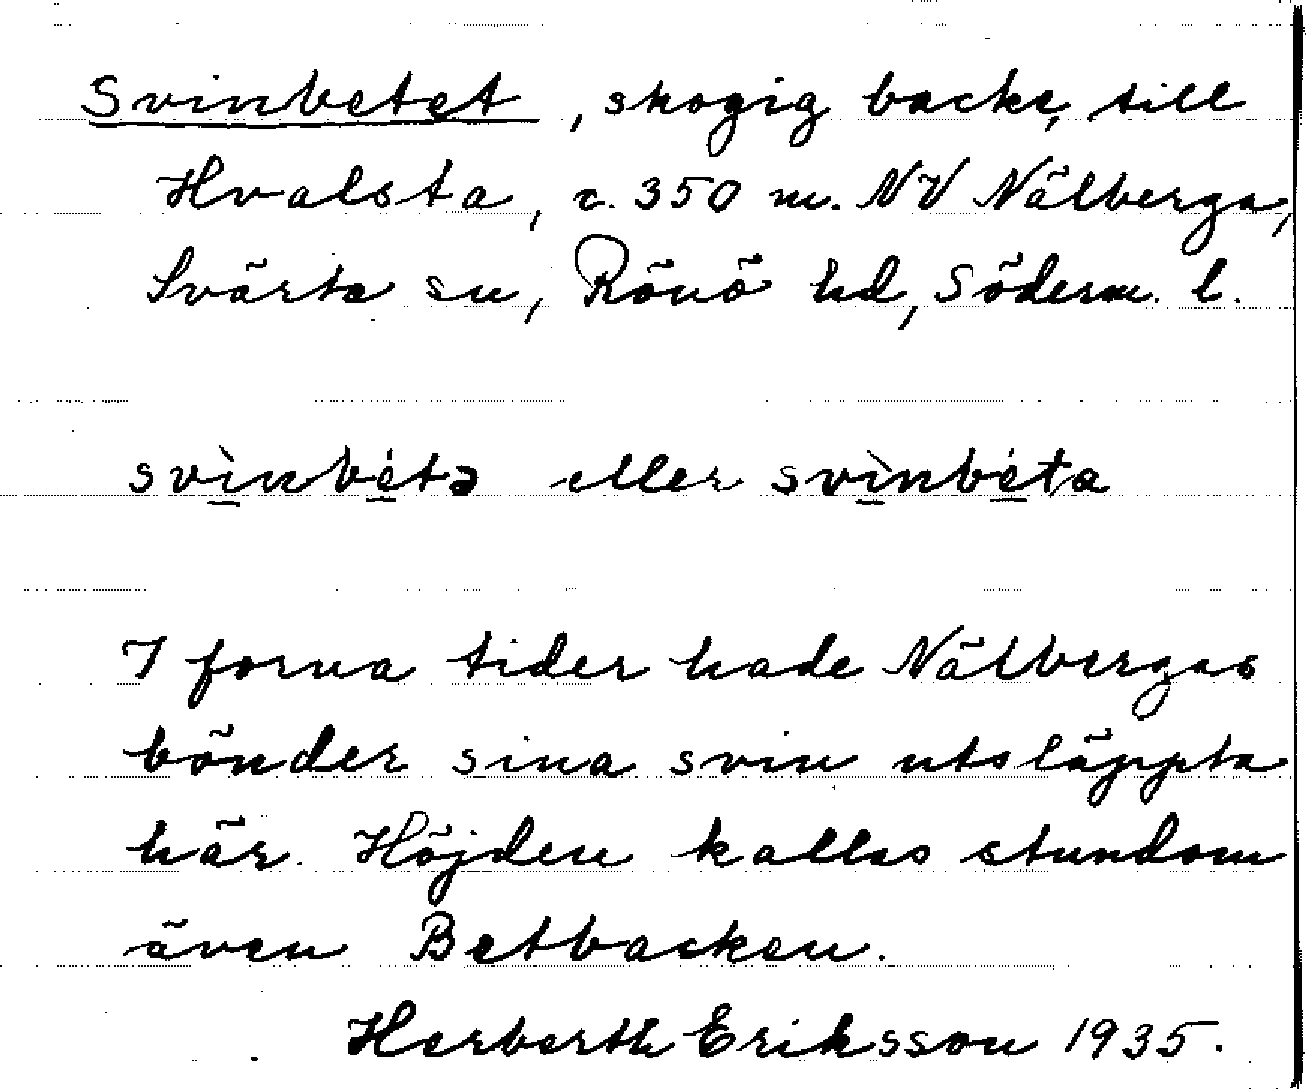 Svinbetet, skogig backe, till
Hvalsta, c. 350 m. NV Nälberga,
Svärta sn, Rönö hd, Söderm. l.
svìnbétə eller svìnbéta
I forna tider hade Nälbergas
bönder sina svin utsläppta
här. Höjden kallas stundom
även Betbacken.
Herberth Eriksson 1935.